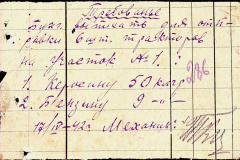 Требованье
выписать для отп-
равки 6 шт. тракторов
на участок №1. :
1. Керосину 50 клгр
2. Бензину 9 -"-
236
17/IV-42г. Механик: